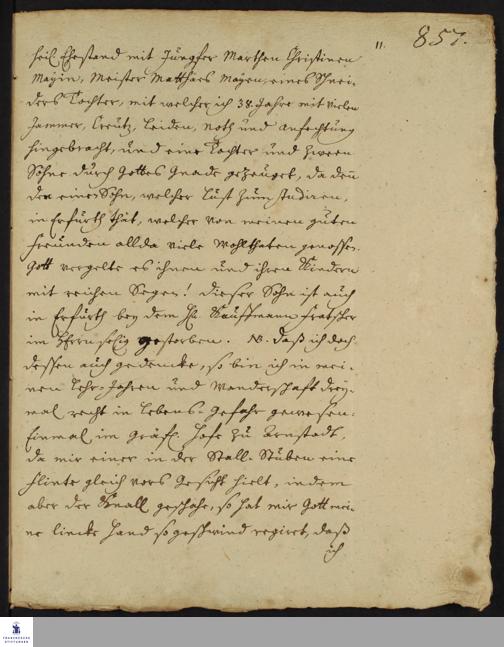 11. 857.
heil. Ehestand mit Jungfer Marthen Christinen
Mayin, Meister Matthäs Mayen, eines Schnei-
ders Tochter, mit welcher ich 38. Jahre mit vielen
Jammer, Creutz, Leiden, Noth und Anfechtung
hingebracht, und eine Tochter und zween
Söhne durch Gottes Gnade gezeuget, da denn
der eine Sohn, welcher Lust zum studiren,
in Erfurth that, welcher von meinen guten
Freunden allda viele Wohlthaten genossen.
Gott vergelte es ihnen und ihren Kindern
mit reichen Segen! dieser Sohn ist auch
in Erfurth bey dem Hn. Kauffmann
im Herrn selig gestorben. NB. Daß ich doch
dessen auch gedencke, so bin ich in mei-
nen Lehr-Jahren und Wanderschafft drey-
mal recht in Lebens-Gefahr gewesen:
Einmal im Gräfl. Hofe zu Arnstadt,
da mir einer in der Stall-Stuben eine
Flinte gleich vors Gesicht hielt, indem
aber der Knall geschahe, so hat mir Gott mei-
ne lincke Hand so geschwind regiret, daß
ich
FRANCKESCHE
STIFTUNGEN